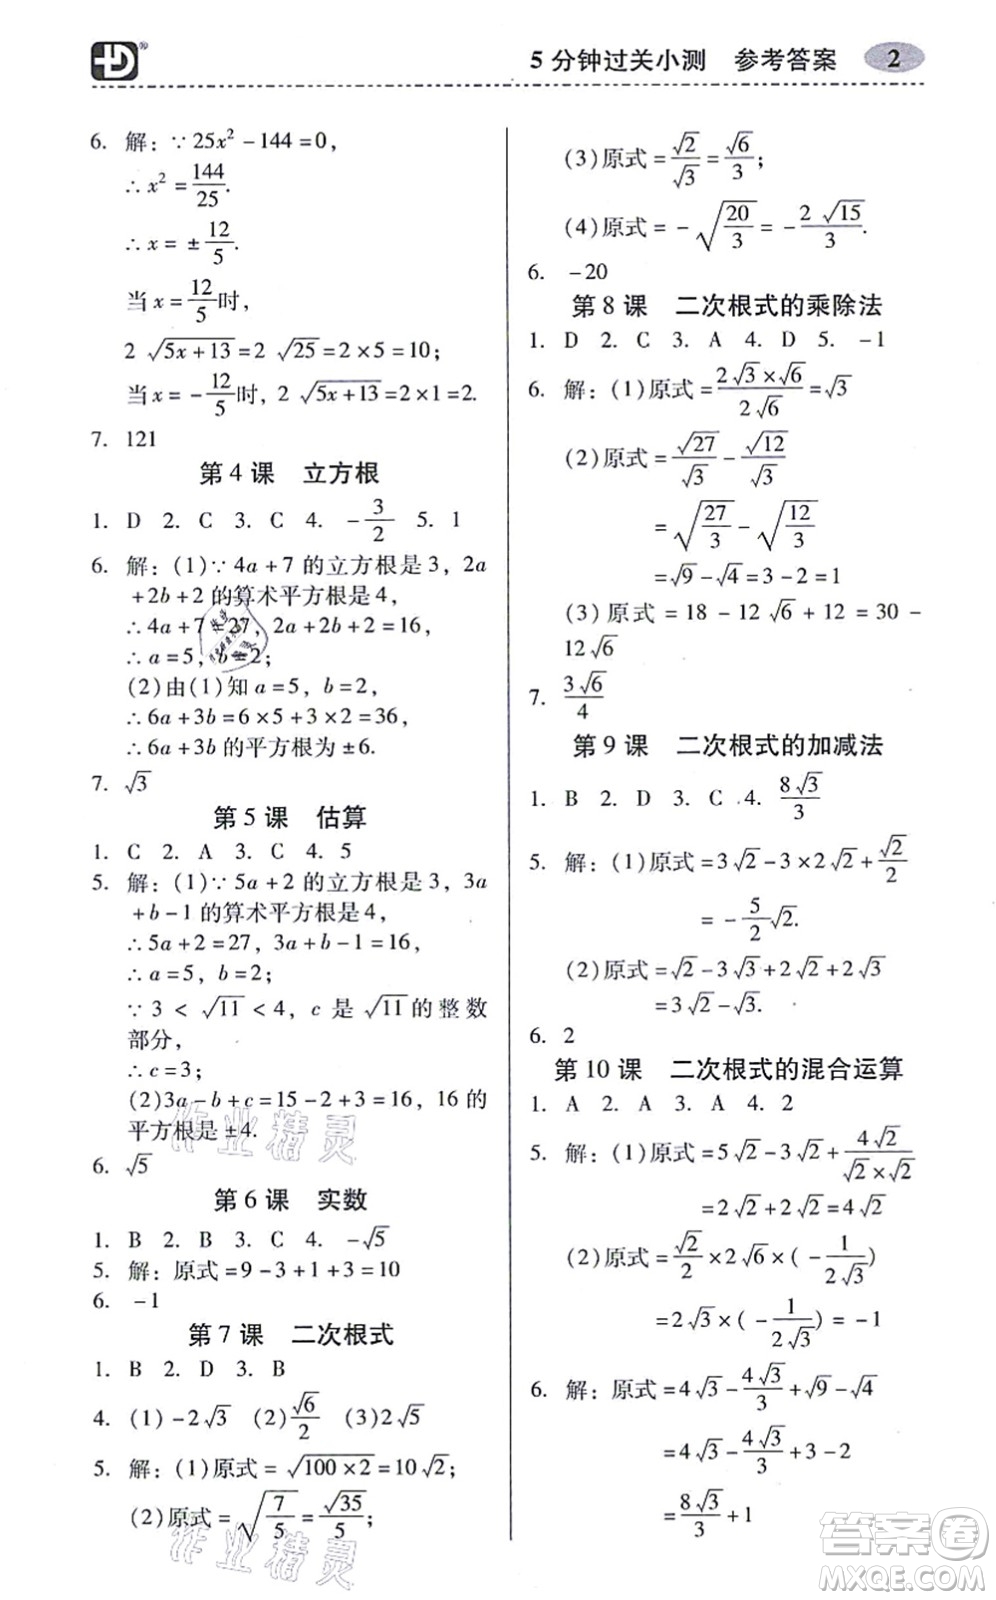 5分钟过关小测 参考答案 2
6. 解：∵25x²-144=0，
∴x²=144/25.
∴x=±12/5.
当x=12/5时，
2√(5x+13)=2√25=2×5=10；
当x=-12/5时，2√(5x+13)=2×1=2.
7. 121
第4课 立方根
1. D 2. C 3. C 4. -3/2 5. 1
6. 解：(1)∵4a+7的立方根是3，2a
+2b+2的算术平方根是4，
∴4a+7=27，2a+2b+2=16，
∴a=5，b=2；
(2)由(1)知a=5，b=2，
∴6a+3b=6×5+3×2=36，
∴6a+3b的平方根为±6.
7. √3
第5课 估算
1. C 2. A 3. C 4. 5
5. 解：(1)∵5a+2的立方根是3，3a
+b-1的算术平方根是4，
∴5a+2=27，3a+b-1=16，
∴a=5，b=2；
∵3<√11<4，c是√11的整数
部分，
∴c=3；
(2)3a-b+c=15-2+3=16，16的
平方根是±4.
6. √5
第6课 实数
1. B 2. B 3. C 4. -√5
5. 解：原式=9-3+1+3=10
6. -1
第7课 二次根式
1. B 2. D 3. B
4. (1)-2√3 (2)√6/2 (3)2√5
5. 解：(1)原式=√(100×2)=10√2；
(2)原式=√(7/5)=√35/5；
(3)原式=√2/√3=√6/3；
(4)原式=-√(20/3)=-2√15/3.
6. -20
第8课 二次根式的乘除法
1. D 2. C 3. A 4. D 5. -1
6. 解：(1)原式=(2√3×√6)/(2√6)=√3
(2)原式=√27/√3-√12/√3
=√(27/3)-√(12/3)
=√9-√4=3-2=1
(3)原式=18-12√6+12=30-
12√6
7. 3√6/4
第9课 二次根式的加减法
1. B 2. D 3. C 4. 8√3/3
5. 解：(1)原式=3√2-3×2√2+√2/2
=-5/2√2.
(2)原式=√2-3√3+2√2+2√3
=3√2-√3.
6. 2
第10课 二次根式的混合运算
1. A 2. A 3. A 4. 2
5. 解：(1)原式=5√2-3√2+4√2/(√2×√2)
=2√2+2√2=4√2
(2)原式=√2/2×2√6×(-1/(2√3))
=2√3×(-1/(2√3))=-1
6. 解：原式=4√3-4√3/3+√9-√4
=4√3-4√3/3+3-2
=8√3/3+1
作业精灵
作业精灵
答案圈
MXQE.COM